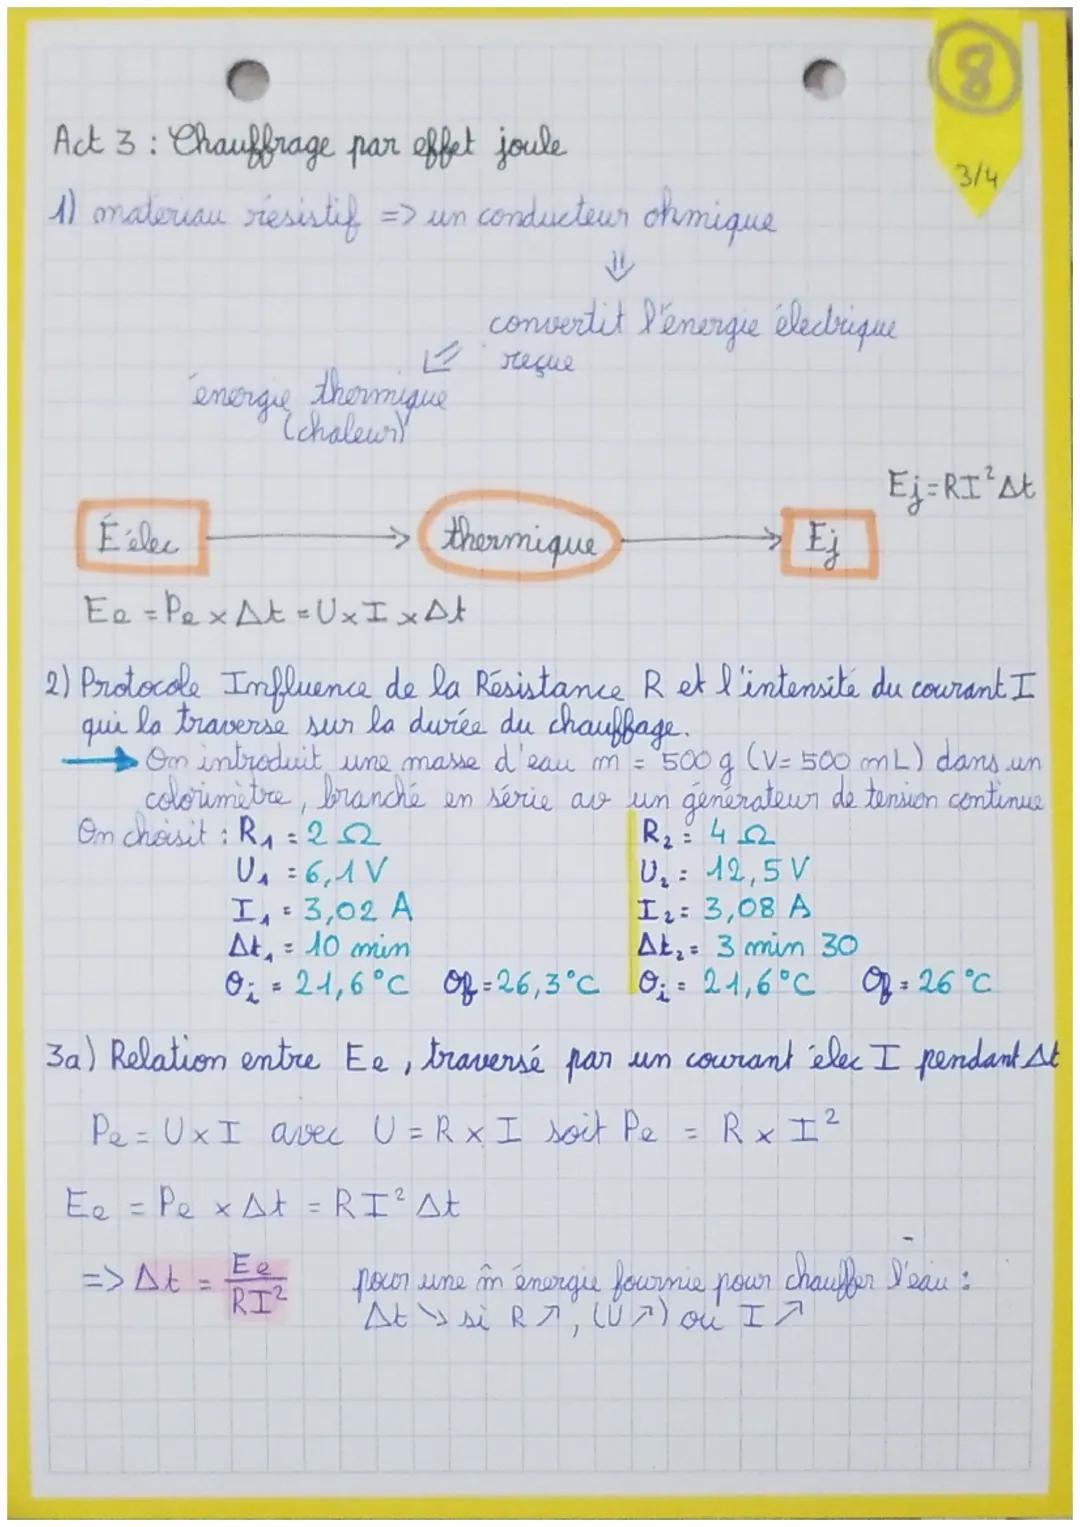 8
3/4
Act 3 : Chauffrage par effet joule
1) materiau résistif => un conducteur ohmique
⇓
convertit l'énergie électrique
reçue
énergie thermique
(chaleur)
Ej = RI² Δt
É élec → thermique → Ej
Ee = Pe × Δt = U × I × Δt
2) Protocole Influence de la Résistance R et l'intensité du courant I
qui la traverse sur la durée du chauffage.
→ On introduit une masse d'eau m = 500 g (V = 500 mL) dans un
colorimètre, branché en série av un générateur de tension continue
On choisit : R₁ = 2 Ω R₂ = 4 Ω
U₁ = 6,1 V U₂ = 12,5 V
I₁ = 3,02 A I₂ = 3,08 A
Δt₁ = 10 min Δt₂ = 3 min 30
θi = 21,6°C θf = 26,3°C θi = 21,6°C θf = 26°C
3a) Relation entre Ee, traversé par un courant élec I pendant Δt
Pe = U × I avec U = R × I soit Pe = R × I²
Ee = Pe × Δt = RI² Δt
=> Δt = Ee / RI² pour une m̂ énergie fournie pour chauffer l'eau :
Δt ↘ si R ↗, (U ↗) ou I ↗